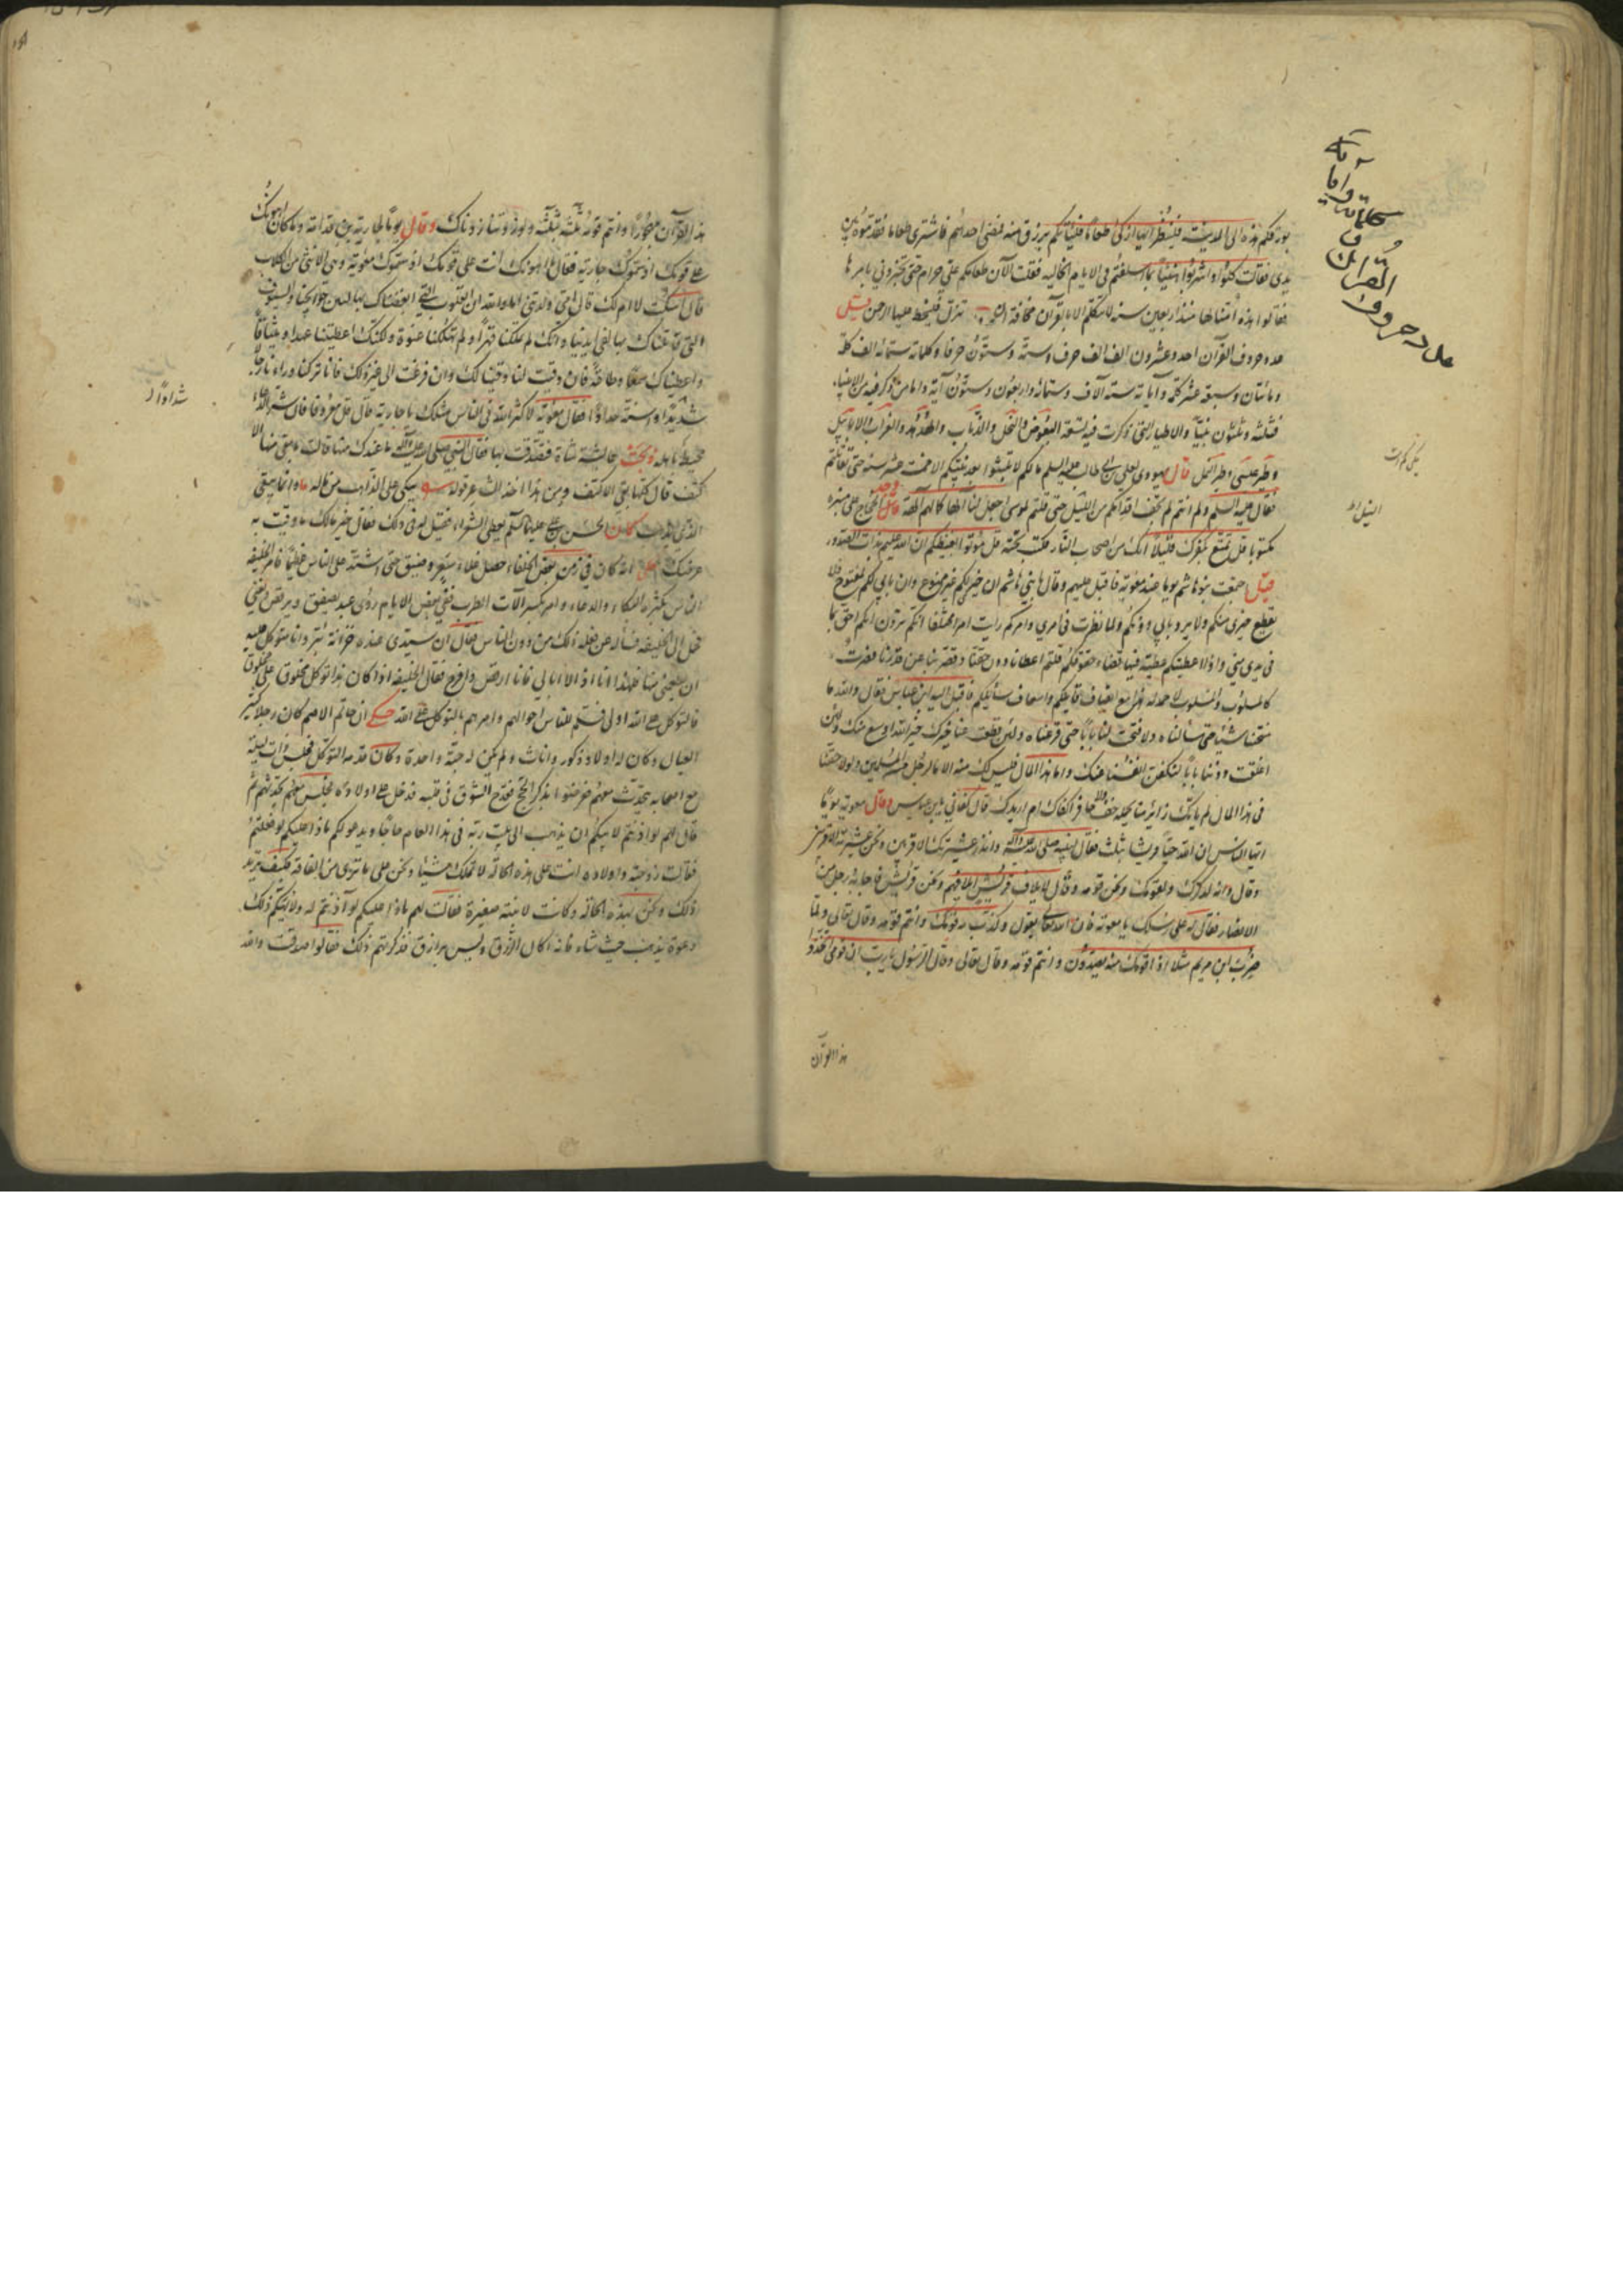 بورقكم هذه الى المدينة فلينظر ايها ازكى طعاما فلياتكم برزق منه فمضى احدهم فاشترى طعاما فقدموه بين
يدى فقالت كلوا واشربوا هنيئا بما اسلفتم فى الايام الخاليه فقلت الآن طعامكم على حرام حتى تخبرونى بامرها
فقالوا هذه امنا لها منذ اربعين سنه لا تتكلم الا بالقرآن مخافة ان تزل فيسخط عليها الرحمن قيل
عدد حروف القرآن احد وعشرون الف الف حرف وستة وستون حرفا وكلماته ستمائه الف كلمة
ومائتان وسبعة عشر كلمة وآياته ستة آلاف وستمائه واربعون وستون آية واما من ذكر فيه من الانبياء
فثلثه وثلثون نبيا والاطيار التى ذكرت فيه تسعة البعوض والنحل والذباب والهدهد والغراب والابابيل
وطير عيسى وطير النمل قال يهودى لعلى بن ابى طالب عليه السلم ما لكم لم تلبثوا بعد نبيكم الا خمس عشر سنه حتى تقاتلتم
فقال عليه السلم ولم انتم لم تجف اقدامكم من النيل حتى قلتم لموسى اجعل لنا الها كما لهم آلهة وجد الحجاج على منبره
مكتوبا قل تمتع بكفرك قليلا انك من اصحاب النار فكتب تحته قل موتوا بغيظكم ان الله عليم بذات الصدور
قيل جمعت بنو هاشم يوما عند معوية فاقبل عليهم وقال يا بنى هاشم ان خيرى لكم غير ممنوع وان بابى لكم لمفتوح فلا
يقطع خيرى عنكم ولا يرد بابى دونكم ولما نظرت فى امرى وامركم رايت امرا مختلفا انكم ترون انكم احق بما
فى يدى منى واذا اعطيتكم عطية فيها قضاء حقوقكم قلتم اعطانا دون حقنا وقصر بنا عن قدرنا فصرت
كالمسلوب والمسلوب لا حمد له هذا مع انصاف قايلكم واسعاف سايلكم فاقبل اليه ابن عباس فقال والله ما
منحتنا شيئا حتى سألناه ولا فتحت لنا بابا حتى قرعناه ولئن قطعت عنا خيرك فخير الله اوسع منك ولئن
اغلقت دوننا بابا لنكفن انفسنا عنك واما هذا المال فليس لك منه الا ما لرجل من المسلمين ولولا حقنا
فى هذا المال لم ياتك منا زائر يحمله خف ولا حافر اكفاك ام ازيدك قال كفانى يا بن عباس وقال معوية يوما
ايها الناس ان الله حبا قريشا بثلث فقال لنبيه صلى الله عليه وآله وانذر عشيرتك الاقربين ونحن عشيرته الاقربين
وقال وانه لذكر لك ولقومك ونحن قومه وقال لايلاف قريش ايلافهم ونحن قريش فاجابه رجل من
الانصار فقال له على رسلك يا معوية فان الله تعالى يقول وكذب به قومك وانتم قومه وقال تعالى ولما
ضرب ابن مريم مثلا اذا قومك منه يصدون وانتم قومه وقال تعالى وقال الرسول يا رب ان قومى اتخذوا
هذا القرآن
عدد حروف
القرآن و
كلماته
وآيا
ته
هذا القرآن مهجورا وانتم قومه ثلثة بثلثة ولو زدتنا زدناك وقال يوما لجارية بن قدامة وما كان اهونك
على قومك اذ سموك جارية فقال ما اهونك انت على قومك اذ سموك معوية وهى الانثى من الكلاب
قال اسكت لا ام لك قال امى ولدتنى اما والله ان القلوب التى ابغضناك بها لبين جوانحنا والسيوف
التى قاتلناك بها لفى ايدينا وانك لم تملكنا قهرا ولم تملكنا عنوة ولكنك اعطيتنا عهدا وميثاقا
واعطيناك سمعا وطاعة فان وفيت لنا وفينا لك وان فزعت الى غير ذلك فانا تركنا وراءنا رجالا
شديدا والسنة حدادا فقال معوية لا كثر الله فى الناس مثلك يا جارية قال قل معروفا فان شر الدعاء
محيط باهله ذبحت عائشة شاة فتصدقت بها فقال النبى صلى الله عليه وآله ما عندك منها قالت ما بقى منها الا
كتف قال كلها بقى الا كتف
الذى يذهب كان الحسن بن على عليهما السلم يعطى الشعراء فقيل له فى ذلك فقال خير مالك ما وقيت به
عرضك حكى انه كان فى زمن بعض الخلفاء حصل غلاء سعر وضيق حتى اشتد على الناس عظيما فامر الخليفه
الناس بكثرة البكاء والدعاء وامر بكسر آلات الطرب ففى بعض الايام رؤى عبد يصفق ويرقص ويغنى
فحمل الى الخليفه فسأله عن فعله ذلك من دون الناس فقال ان سيدى عنده خزانة بر وانا متوكل عليه
ان يطعمنى منها فلهذا انا اذا لا ابالى فانا ارقص وافرح فقال الخليفه اذا كان هذا توكل مخلوق على مخلوق
فالتوكل على الله اولى فسلم للناس احوالهم وامرهم بالتوكل على الله حكى ان حاتم الاصم كان رجلا كثير
العيال وكان له اولاد ذكور واناث ولم يكن له حبة واحدة وكان قدمه التوكل فجلس ذات ليلة
مع اصحابه يتحدث معهم فتعرضوا بذكر الحج فقدح الشوق فى قلبه فدخل على اولاده فجلس معهم يحدثهم ثم
قال لهم لو اذنتم لابيكم ان يذهب الى بيت ربه فى هذا العام حاجا ويدعو لكم ماذا عليكم لو فعلتم
فقالت زوجته واولاده انت على هذه الحالة لا تملك شيئا ونحن على ما ترى من الفاقة فكيف تريد
ذلك ونحن بهذه الحالة وكانت له ابنة صغيرة فقالت لهم ماذا عليكم لو اذنتم له ولا يهمكم ذلك
دعوه يذهب حيث شاء فانه اكال الرزق وليس برازق فذكرتهم ذلك فقالوا صدقت والله